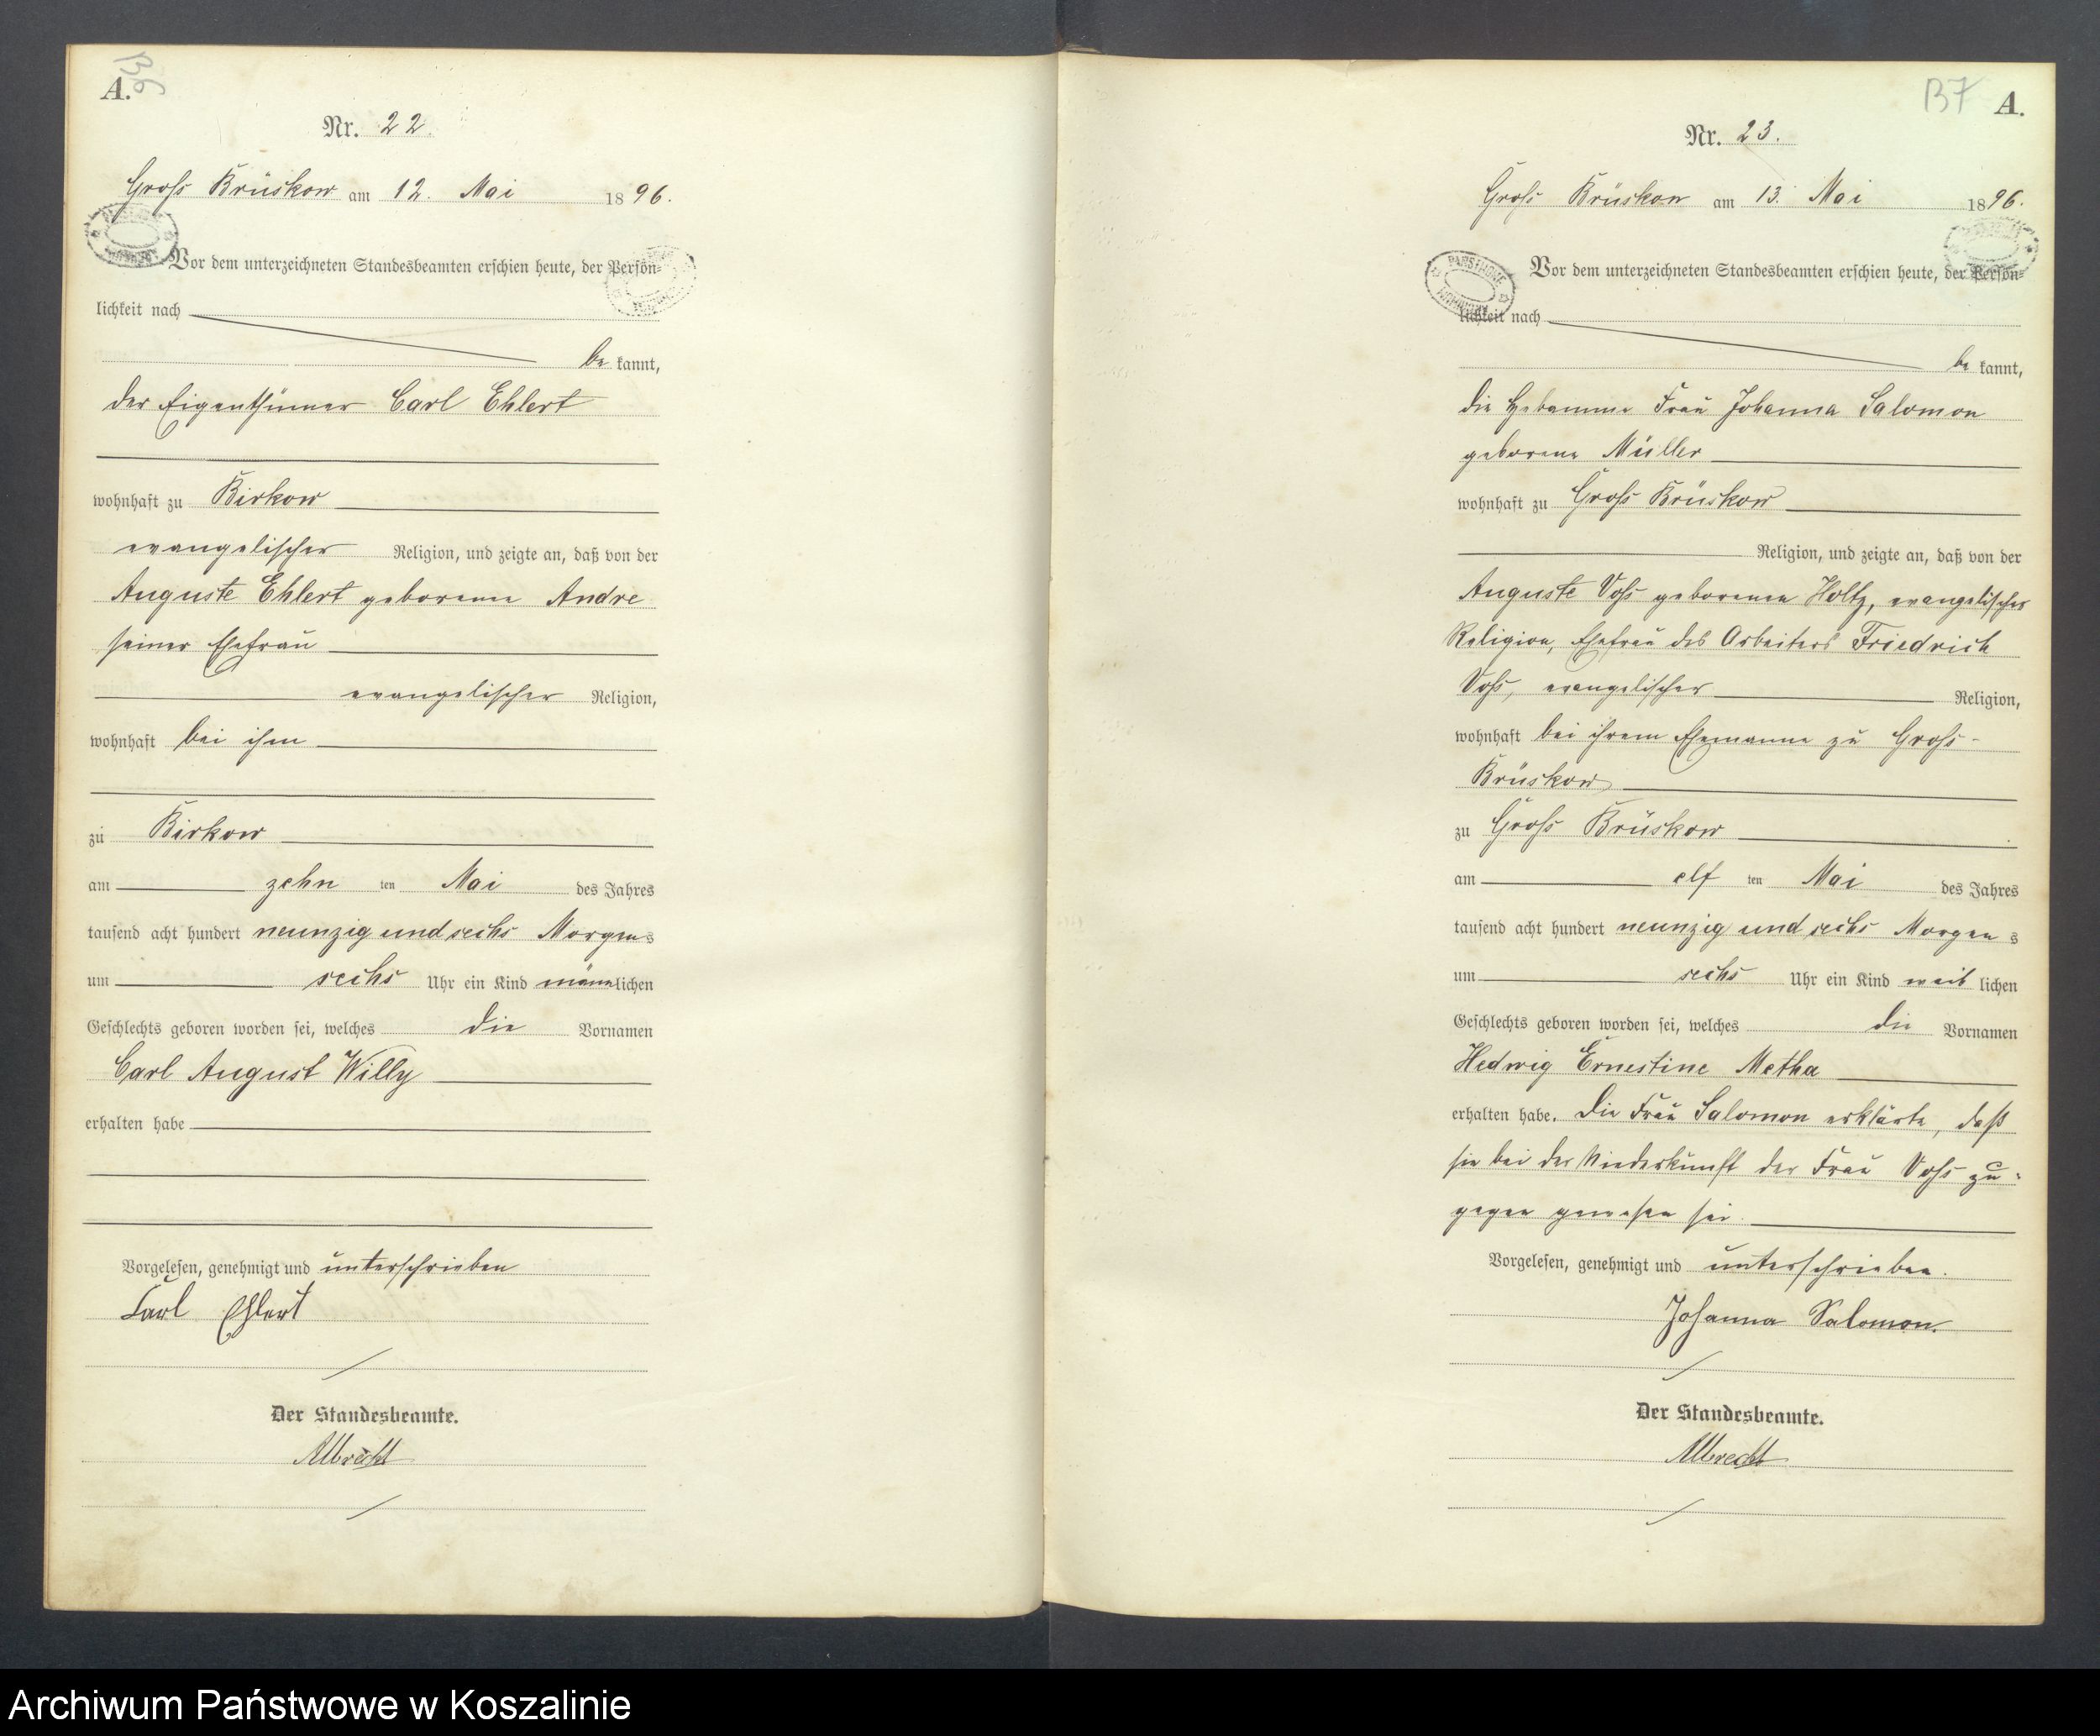 B6
A.
Nr. 22.
Gross Brüskow am 12. Mai 1896.
Vor dem unterzeichneten Standesbeamten erschien heute, der Persön-
lichkeit nach
be kannt,
der Eigenthümer Carl Ehlert
wohnhaft zu Birkow
evangelischer Religion, und zeigte an, daß von der
Auguste Ehlert geborenen Andre
seiner Ehefrau
evangelischer Religion,
wohnhaft bei ihm
zu Birkow
am zehn ten Mai des Jahres
tausend acht hundert neunzig und sechs Morgens
um sechs Uhr ein Kind männlichen
Geschlechts geboren worden sei, welches die Vornamen
Carl August Willy
erhalten habe
Vorgelesen, genehmigt und unterschrieben
Carl Ehlert
Der Standesbeamte.
Albrecht
B7
A.
Nr. 23.
Gross Brüskow am 13. Mai 1896.
Vor dem unterzeichneten Standesbeamten erschien heute, der Persön-
lichkeit nach
be kannt,
die Hebamme Frau Johanna Salomon
geborene Müller
wohnhaft zu Gross Brüskow
Religion, und zeigte an, daß von der
Auguste Voss geborenen Holtz, evangelischer
Religion, Ehefrau des Arbeiters Friedrich
Voss, evangelischer Religion,
wohnhaft bei ihrem Ehemanne zu Gross-
Brüskow
zu Gross Brüskow
am elf ten Mai des Jahres
tausend acht hundert neunzig und sechs Morgens
um sechs Uhr ein Kind weib lichen
Geschlechts geboren worden sei, welches die Vornamen
Hedwig Ernestine Metha
erhalten habe. Die Frau Salomon erklärte, daß
sie bei der Niederkunft der Frau Voss zu-
gegen gewesen sei.
Vorgelesen, genehmigt und unterschrieben.
Johanna Salomon.
Der Standesbeamte.
Albrecht
Archiwum Państwowe w Koszalinie